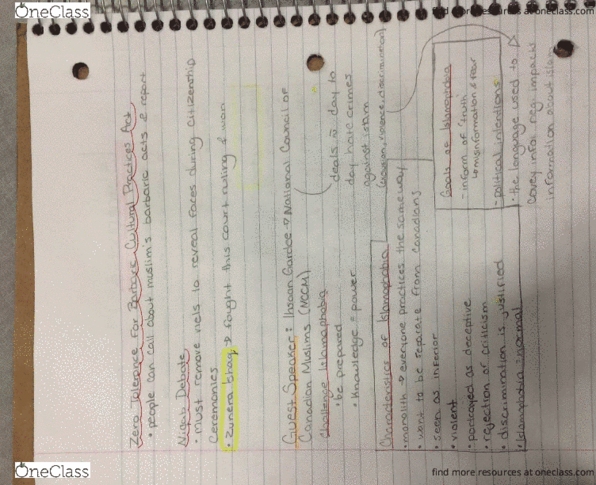 OneClass
find more resources at oneclass.com
Zero Tolerance For Barbaric Cultural Practices Act
• people can call about muslim's barbaric acts & report
Niqab Debate
• must remove to reveal faces during citizenship
ceremonies
• zunera Ishaq → fought this court ruling & won
Guest Speaker: Ihsaan Gardee → National Council of
Canadian Muslims (NCCM)
challenge Islamaphobia
• be prepared
• Knowledge = power
deals w day to
day hate crimes
against islam
Characteristics of Islamaphobia
• monolith → everyone practices the same way
• want to be separate from Canadians
• seen as inferior
• violent
• portrayed as deceptive
• rejection of criticism
• discrimination is justified
• Islamaphobia = normal
Goals of Islamaphobia
- inform of "truth"
↳ misinformation & fear
- political intentions
• the language used to
covey infor. neg. impacts
information about islam
OneClass
find more resources at oneclass.com